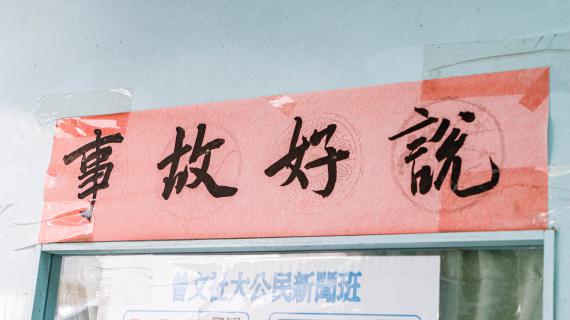 事故好說
曾文社大公民新聞班